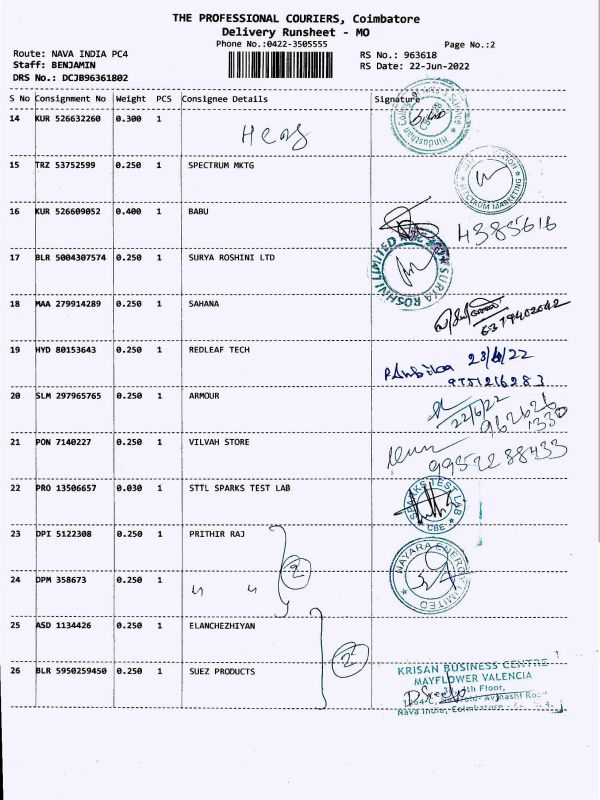 THE PROFESSIONAL COURIERS, Coimbatore
Delivery Runsheet - MO
Phone No.:0422-3505555
Page No.:2
Route: NAVA INDIA PC4
Staff: BENJAMIN
DRS No.: DCJB96361802
RS No.: 963618
RS Date: 22-Jun-2022
S No Consignment No Weight PCS Consignee Details Signature
14 KUR 526632260 0.300 1
15 TRZ 53752599 0.250 1 SPECTRUM MKTG
SPECTRUM MARKETING
16 KUR 526609052 0.400 1 BABU
4385616
17 BLR 5004307574 0.250 1 SURYA ROSHINI LTD
SURYA ROSHNI LIMITED
18 MAA 279914289 0.250 1 SAHANA
6379402042
19 HYD 80153643 0.250 1 REDLEAF TECH
9751216283
20 SLM 297965765 0.250 1 ARMOUR
22/6/22
962626
1330
21 PON 7140227 0.250 1 VILVAH STORE
9952288433
22 PRO 13506657 0.030 1 STTL SPARKS TEST LAB
SPARKS TEST LAB
CBE
23 DPI 5122308 0.250 1 PRITHIR RAJ
2
NAYARA ENERGY LIMITED
24 DPM 358673 0.250 1 " "
25 ASD 1134426 0.250 1 ELANCHEZHIYAN
2
26 BLR 5950259450 0.250 1 SUEZ PRODUCTS
KRISAN BUSINESS CENTRE
MAYFLOWER VALENCIA
Floor,
Nava India, Coimbatore